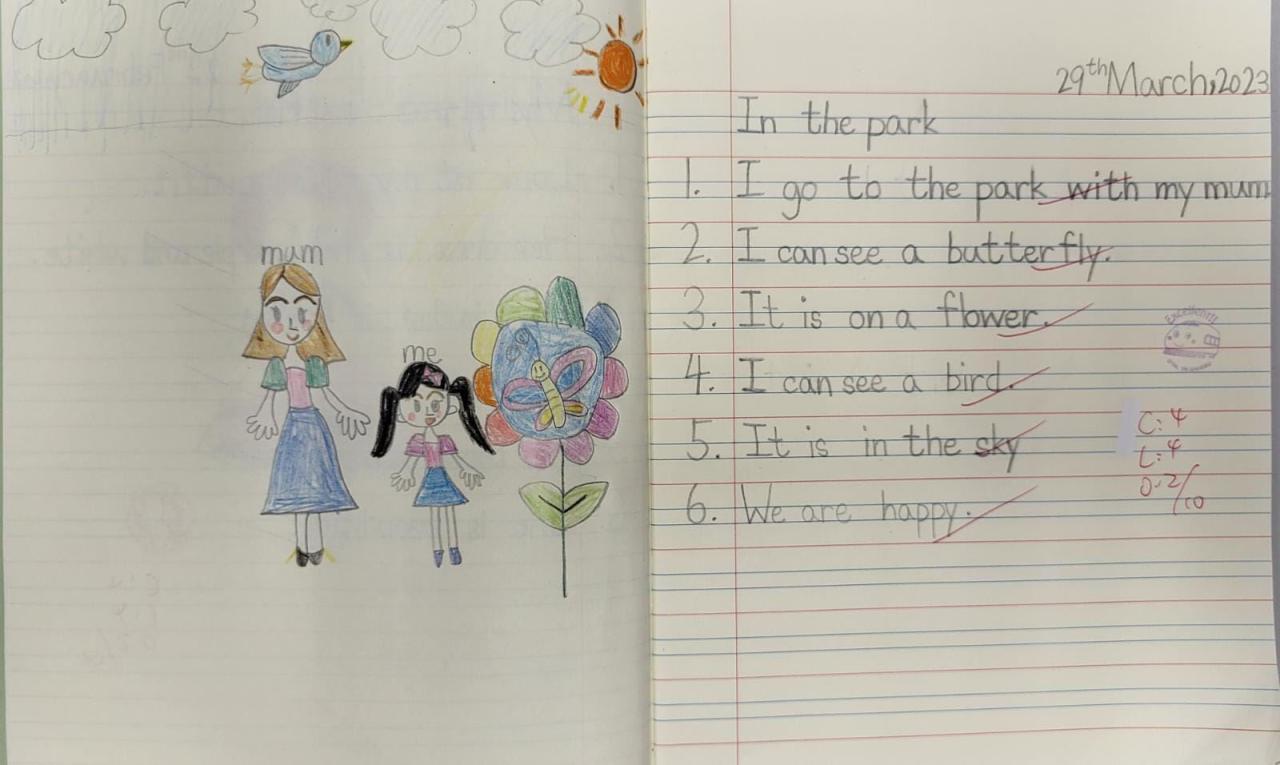 mum
me
29th March, 2023
In the park
1. I go to the park with my mum
2. I can see a butterfly.
3. It is on a flower.
4. I can see a bird.
5. It is in the sky
6. We are happy.
Excellent!
C: 4
L: 4
O: 2/10